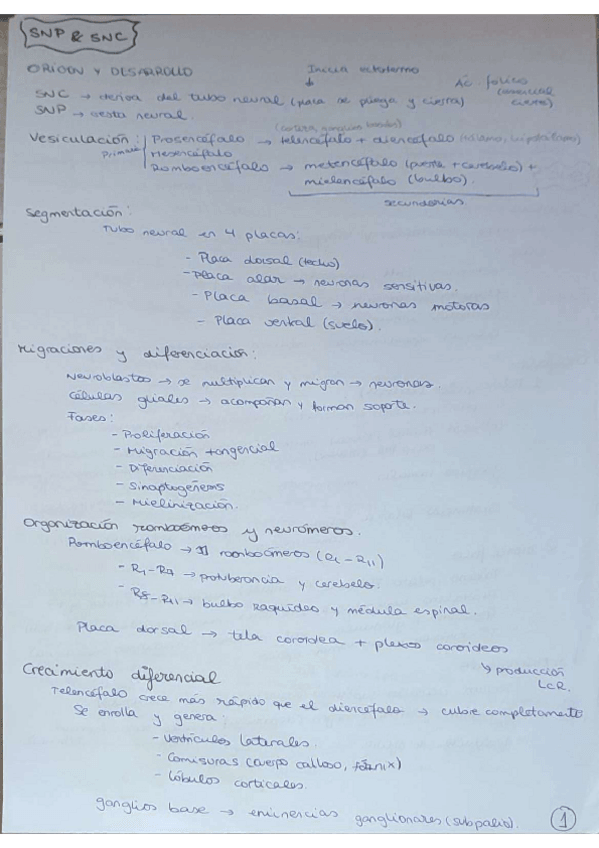 SNP & SNC
ORIGEN Y DESARROLLO
Inicia ectodermo
↓
Ác. fólico
(esencial
cierre)
SNC → deriva del tubo neural (placa se pliega y cierra)
SNP → cresta neural.
(corteza, ganglios basales)
Vesiculación: Prosencéfalo → telencéfalo + diencéfalo (tálamo, hipotálamo)
Primaria Mesencéfalo
Romboencéfalo → metencéfalo (puente + cerebelo) +
mielencéfalo (bulbo).
secundarias
Segmentación:
Tubo neural en 4 placas:
- Placa dorsal (techo)
- placa alar → neuronas sensitivas.
- Placa basal → neuronas motoras
- Placa ventral (suelo).
Migraciones y diferenciación:
Neuroblastos → se multiplican y migran → neuronas.
Células gliales → acompañan y forman soporte.
Fases:
- Proliferación
- Migración tangencial
- Diferenciación
- Sinaptogénesis
- Mielinización.
Organización rombómeros y neurómeros.
Romboencéfalo → 11 rombómeros (R1 – R11)
- R1-R7 → protuberancia y cerebelo.
- R8-R11 → bulbo raquídeo y médula espinal.
Placa dorsal → tela coroidea + plexos coroideos
↳ producción
LCR.
Crecimiento diferencial
Telencéfalo crece más rápido que el diencéfalo → cubre completamente
Se enrolla y genera:
- Ventrículos laterales.
- Comisuras (cuerpo calloso, fórnix)
- Lóbulos corticales.
ganglios base → eminencias ganglionares (subpalio).
1